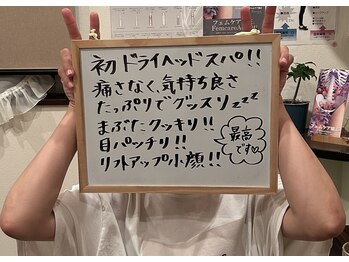 フェムケア
Femcare
初ドライヘッドスパ!!
痛さなく、気持ち良さ
たっぷりでグッスリzzz
まぶたクッキリ!!
目パッチリ!!
リフトアップ小顔!!
最高
です♡
フェムケア